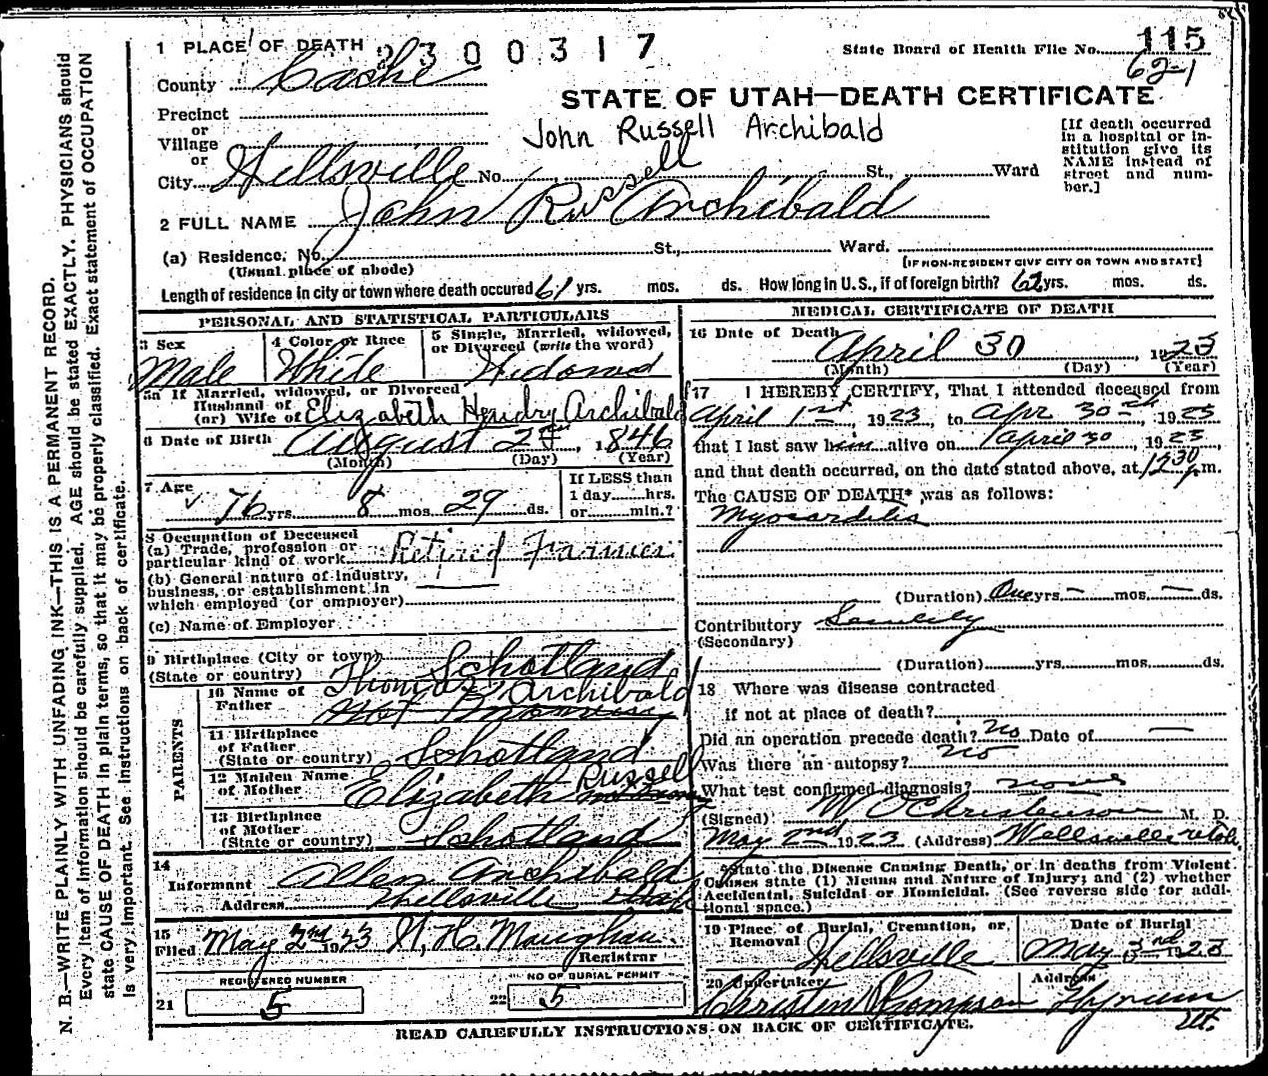 1 PLACE OF DEATH 2300317
State Board of Health File No. 115
62-1
County Cache
STATE OF UTAH—DEATH CERTIFICATE
Precinct
or
Village
or
John Russell Archibald
[If death occurred
in a hospital or in-
stitution give its
NAME instead of
street and num-
ber.]
City Wellsville No. St., Ward
2 FULL NAME John Russell Archibald
(a) Residence. No. St., Ward.
(Usual place of abode) [IF NON-RESIDENT GIVE CITY OR TOWN AND STATE]
Length of residence in city or town where death occured 61 yrs. mos. ds. How long in U.S., if of foreign birth? 62 yrs. mos. ds.
PERSONAL AND STATISTICAL PARTICULARS
3 Sex
Male
4 Color or Race
White
5 Single, Married, widowed,
or Divorced (write the word)
Widowed
5a If Married, widowed, or Divorced
Husband of
(or) Wife of Elizabeth Hendry Archibald
6 Date of Birth August 2nd, 1846
(Month) (Day) (Year)
7 Age
76 yrs. 8 mos. 29 ds.
If LESS than
1 day hrs.
or min.?
8 Occupation of Deceased
(a) Trade, profession or
particular kind of work Retired Farmer
(b) General nature of industry,
business, or establishment in
which employed (or employer)
(c) Name of Employer
9 Birthplace (City or town)
(State or country) Schotland
PARENTS
10 Name of
Father Thomas Archibald
11 Birthplace
of Father
(State or country) Schotland
12 Maiden Name
of Mother Elizabeth Russell
13 Birthplace
of Mother
(State or country) Schotland
14
Informant Allen Archibald
Address Wellsville Utah
15
Filed May 2nd 1923 H. Maughan
Registrar
REGISTERED NUMBER
21 5
NO OF BURIAL PERMIT
22 5
MEDICAL CERTIFICATE OF DEATH
16 Date of Death
April 30, 1923
(Month) (Day) (Year)
17 I HEREBY CERTIFY, That I attended deceased from
April 1st, 1923, to Apr 30, 1923
that I last saw him alive on April 30, 1923,
and that death occurred, on the date stated above, at 1230 p.m.
The CAUSE OF DEATH* was as follows:
Myocarditis
(Duration) One yrs. — mos. — ds.
Contributory Senility
(Secondary)
(Duration) yrs. mos. ds.
18 Where was disease contracted
if not at place of death?
Did an operation precede death? No Date of —
Was there an autopsy? No
What test confirmed diagnosis? none
(Signed) W O Christenson M. D.
May 2nd 1923 (Address) Wellsville Utah
*State the Disease Causing Death, or in deaths from Violent
Causes state (1) Means and Nature of Injury; and (2) whether
Accidental, Suicidal or Homicidal. (See reverse side for addi-
tional space.)
19 Place of Burial, Cremation, or
Removal Wellsville
Date of Burial
May 3 1923
20 Undertaker
Thompson
Address
Hyrum
Ut.
READ CAREFULLY INSTRUCTIONS ON BACK OF CERTIFICATE.
N. B.—WRITE PLAINLY WITH UNFADING INK—THIS IS A PERMANENT RECORD.
Every item of information should be carefully supplied. AGE should be stated EXACTLY. PHYSICIANS should
state CAUSE OF DEATH in plain terms, so that it may be properly classified. Exact statement of OCCUPATION
is very important. See instructions on back of certificate.